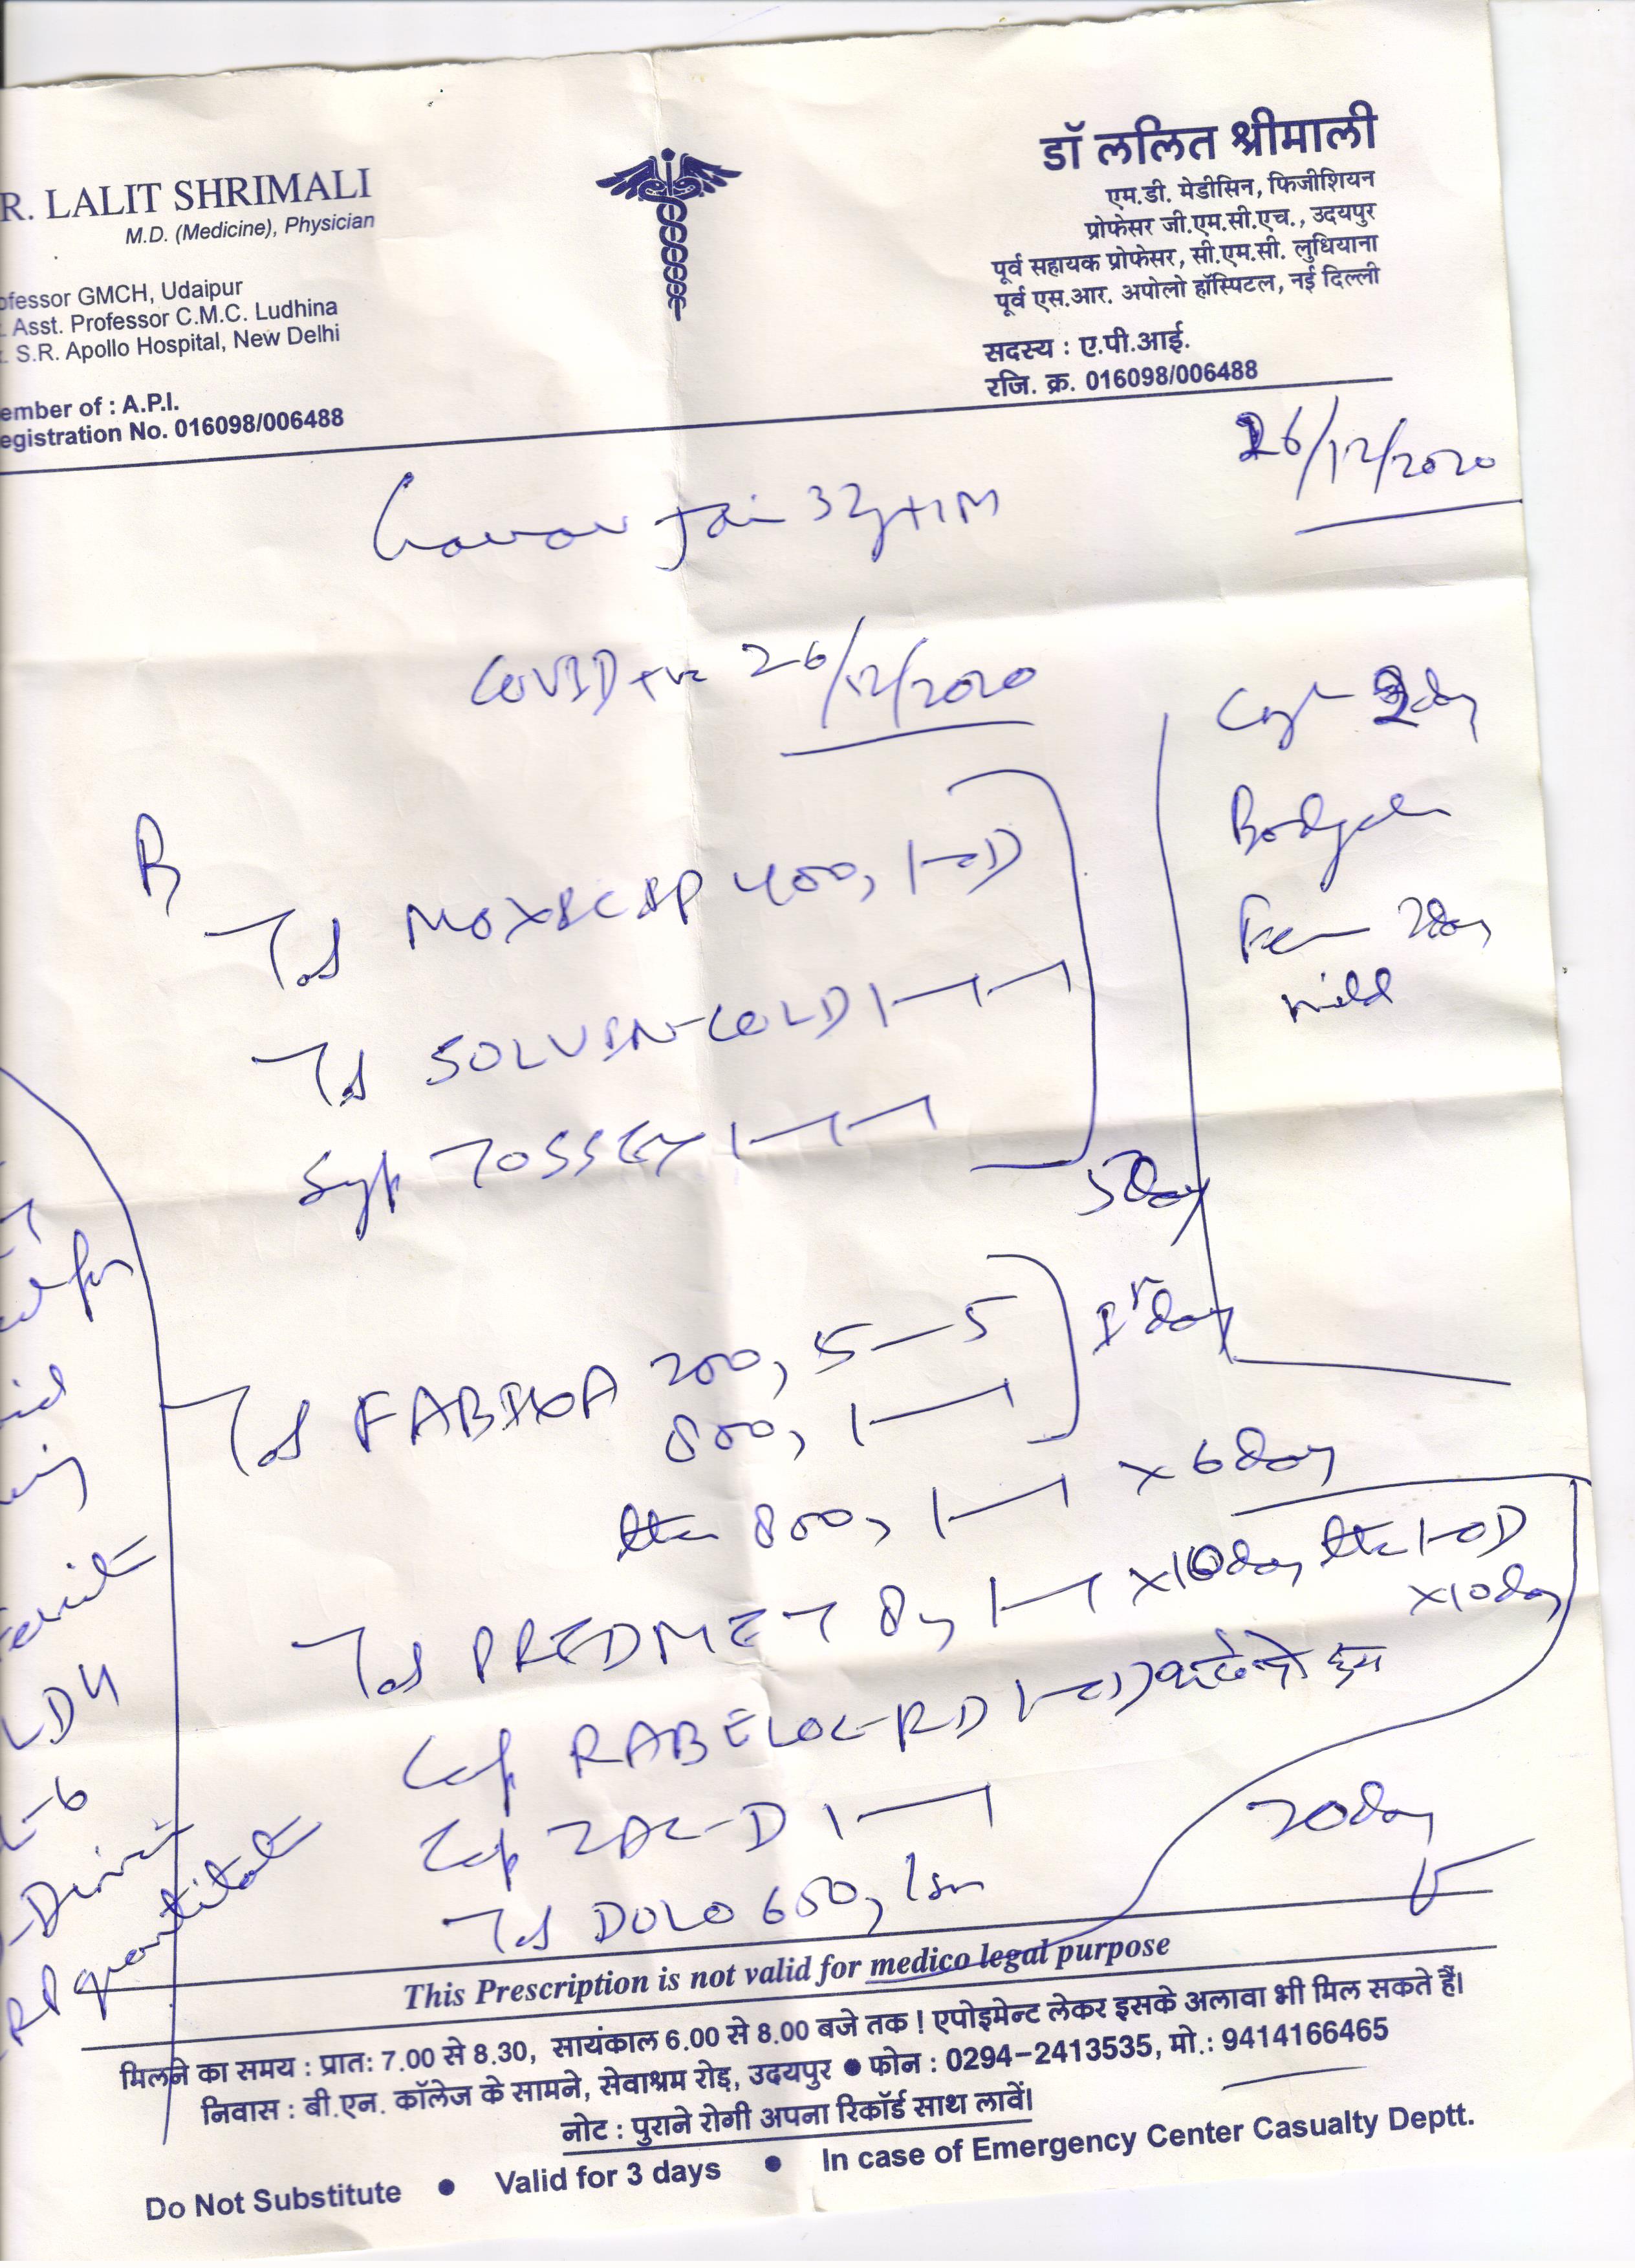 R. LALIT SHRIMALI
M.D. (Medicine), Physician
ofessor GMCH, Udaipur
. Asst. Professor C.M.C. Ludhina
. S.R. Apollo Hospital, New Delhi
ember of : A.P.I.
egistration No. 016098/006488
डॉ ललित श्रीमाली
एम.डी. मेडीसिन, फिजीशियन
प्रोफेसर जी.एम.सी.एच., उदयपुर
पूर्व सहायक प्रोफेसर, सी.एम.सी. लुधियाना
पूर्व एस.आर. अपोलो हॉस्पिटल, नई दिल्ली
सदस्य : ए.पी.आई.
रजि. क्र. 016098/006488
26/12/2020
Jain 32yr/M
COVID+ve 26/12/2020
2day
Bodyache
Fever 2day
mild
R
Tab MOXICIP 400, 1-OD
Tab SOLVIN-COLD 1-1-1
Syp TOSSEX 1-1-1
5day
Tab FABIXXA 200, 5-5
800, 1-1
1st day
then 800, 1-1 x 6day
Tab PREDMET 8mg 1-1 x10day then 1-OD
x10day
Cap RABELOC-RD 1-OD
Cap ZAC-D 1-1
Tab DOLO 650, 1 sos
20day
Ferritin
LDH
L-6
-Dimer
RP quantitative
This Prescription is not valid for medico legal purpose
मिलने का समय : प्रातः 7.00 से 8.30, सायंकाल 6.00 से 8.00 बजे तक ! एपोइमेन्ट लेकर इसके अलावा भी मिल सकते हैं।
निवास : बी.एन. कॉलेज के सामने, सेवाश्रम रोड़, उदयपुर ● फोन : 0294-2413535, मो.: 9414166465
नोट : पुराने रोगी अपना रिकॉर्ड साथ लावें।
Do Not Substitute ● Valid for 3 days ● In case of Emergency Center Casualty Deptt.